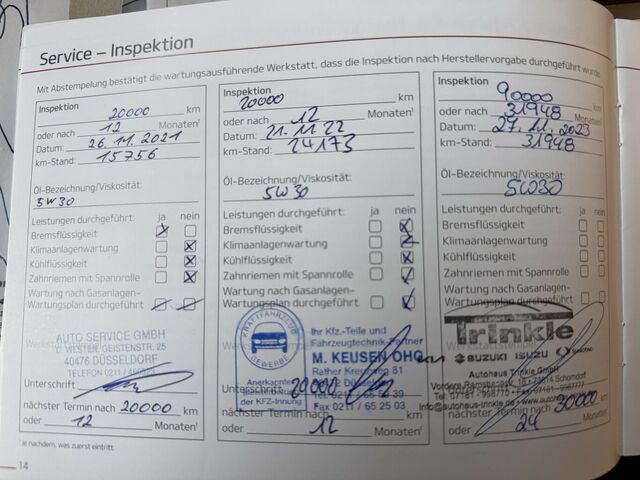 Service – Inspektion
Mit Abstempelung bestätigt die wartungsausführende Werkstatt, dass die Inspektion nach Herstellervorgabe durchgeführt wurde.
Inspektion
20000 km
oder nach 12 Monaten¹
Datum: 26.11.2021
km-Stand: 15756
Öl-Bezeichnung/Viskosität:
5W30
Leistungen durchgeführt: ja nein
Bremsflüssigkeit
Klimaanlagenwartung
Kühlflüssigkeit
Zahnriemen mit Spannrolle
Wartung nach Gasanlagen-
Wartungsplan durchgeführt
AUTO SERVICE GMBH
40476 DÜSSELDORF
TELEFON 0211 /
Unterschrift
nächster Termin nach 20000 km
oder 12 Monaten¹
Inspektion
20000 km
oder nach 12 Monaten¹
Datum: 21.11.22
km-Stand: 24173
Öl-Bezeichnung/Viskosität:
5W30
Leistungen durchgeführt: ja nein
Bremsflüssigkeit
Klimaanlagenwartung
Kühlflüssigkeit
Zahnriemen mit Spannrolle
Wartung nach Gasanlagen-
Wartungsplan durchgeführt
KRAFTFAHRZEUG
GEWERBE
Anerkannter
der KFZ-Innung
Ihr Kfz.-Teile und
Fahrzeugtechnik-Partner
M. KEUSEN OHG
Rather Kreuzweg 81
Fax 0211 / 65 25 03
Unterschrift
nächster Termin nach 20000 km
oder 12 Monaten¹
Inspektion
90000 km
oder nach 31948 Monaten¹
Datum: 27.11.2023
km-Stand: 31948
Öl-Bezeichnung/Viskosität:
5W30
Leistungen durchgeführt: ja nein
Bremsflüssigkeit
Klimaanlagenwartung
Kühlflüssigkeit
Zahnriemen mit Spannrolle
Wartung nach Gasanlagen-
Wartungsplan durchgeführt
Trinkle
KIA SUZUKI ISUZU
Autohaus Trinkle GmbH
Schorndorf
info@autohaus-trinkle.de
nächster Termin nach 30000 km
oder 24 Monaten¹
¹ Je nachdem, was zuerst eintritt.
14